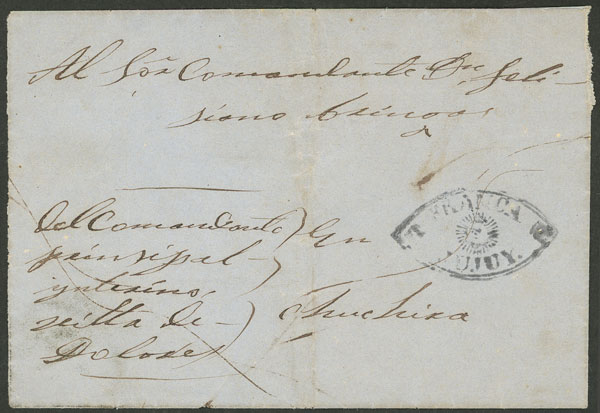 Al Sor Comandante Dn. Feli-
siano
del Comandante
prinsipal
ynterino,
villa de
Dolores
En
Chuchira
FRANCA
JUJUY.